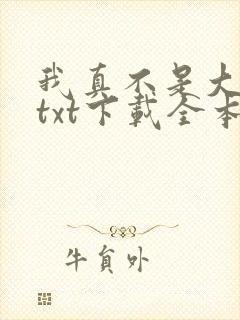 我真不是大
txt下载全本
牛贠外